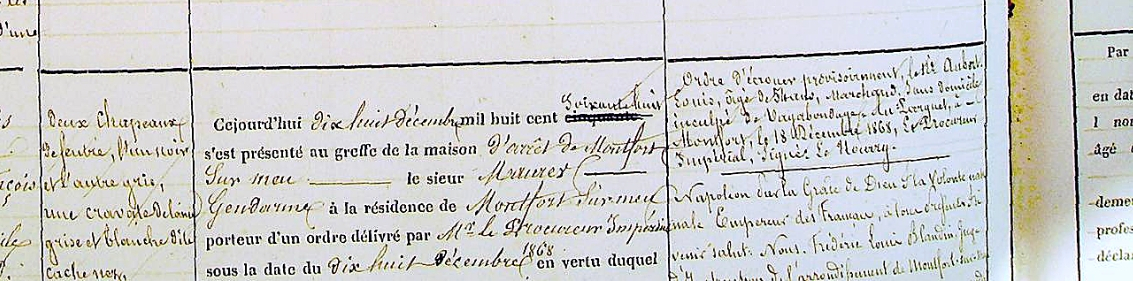 d'une
deux chapeaux
de feutre, l'un noir
et l'autre gris,
une cravate de laine
grise et blanche dite
cache nez,
Cejourd'hui dix huit décembre mil huit cent cinquante soixante huit
s'est présenté au greffe de la maison d'arrêt de Montfort
Sur meu le sieur
Gendarme à la résidence de Montfort Sur meu
porteur d'un ordre délivré par Mr le Procureur Impérial
sous la date du dix huit décembre 1868 en vertu duquel
Ordre d'écrouer provisoirement, le né Aubert
Louis, âgé de ans, Marchand, Sans domicile
inculpé de Vagabondage. Au Parquet, à
Montfort, le 18 Décembre 1868, Le Procureur
Impérial, Signé Le
Napoléon par la Grâce de Dieu & la Volonté natio
nale Empereur des Français, à tous présents & à
venir salut. Nous. Frédéric Louis Blandin, Juge
d'Instruction de l'arrondissement de Montfort-Sur-Meu
Par
en dat
l nor
âgé
demeu
profes
déclar